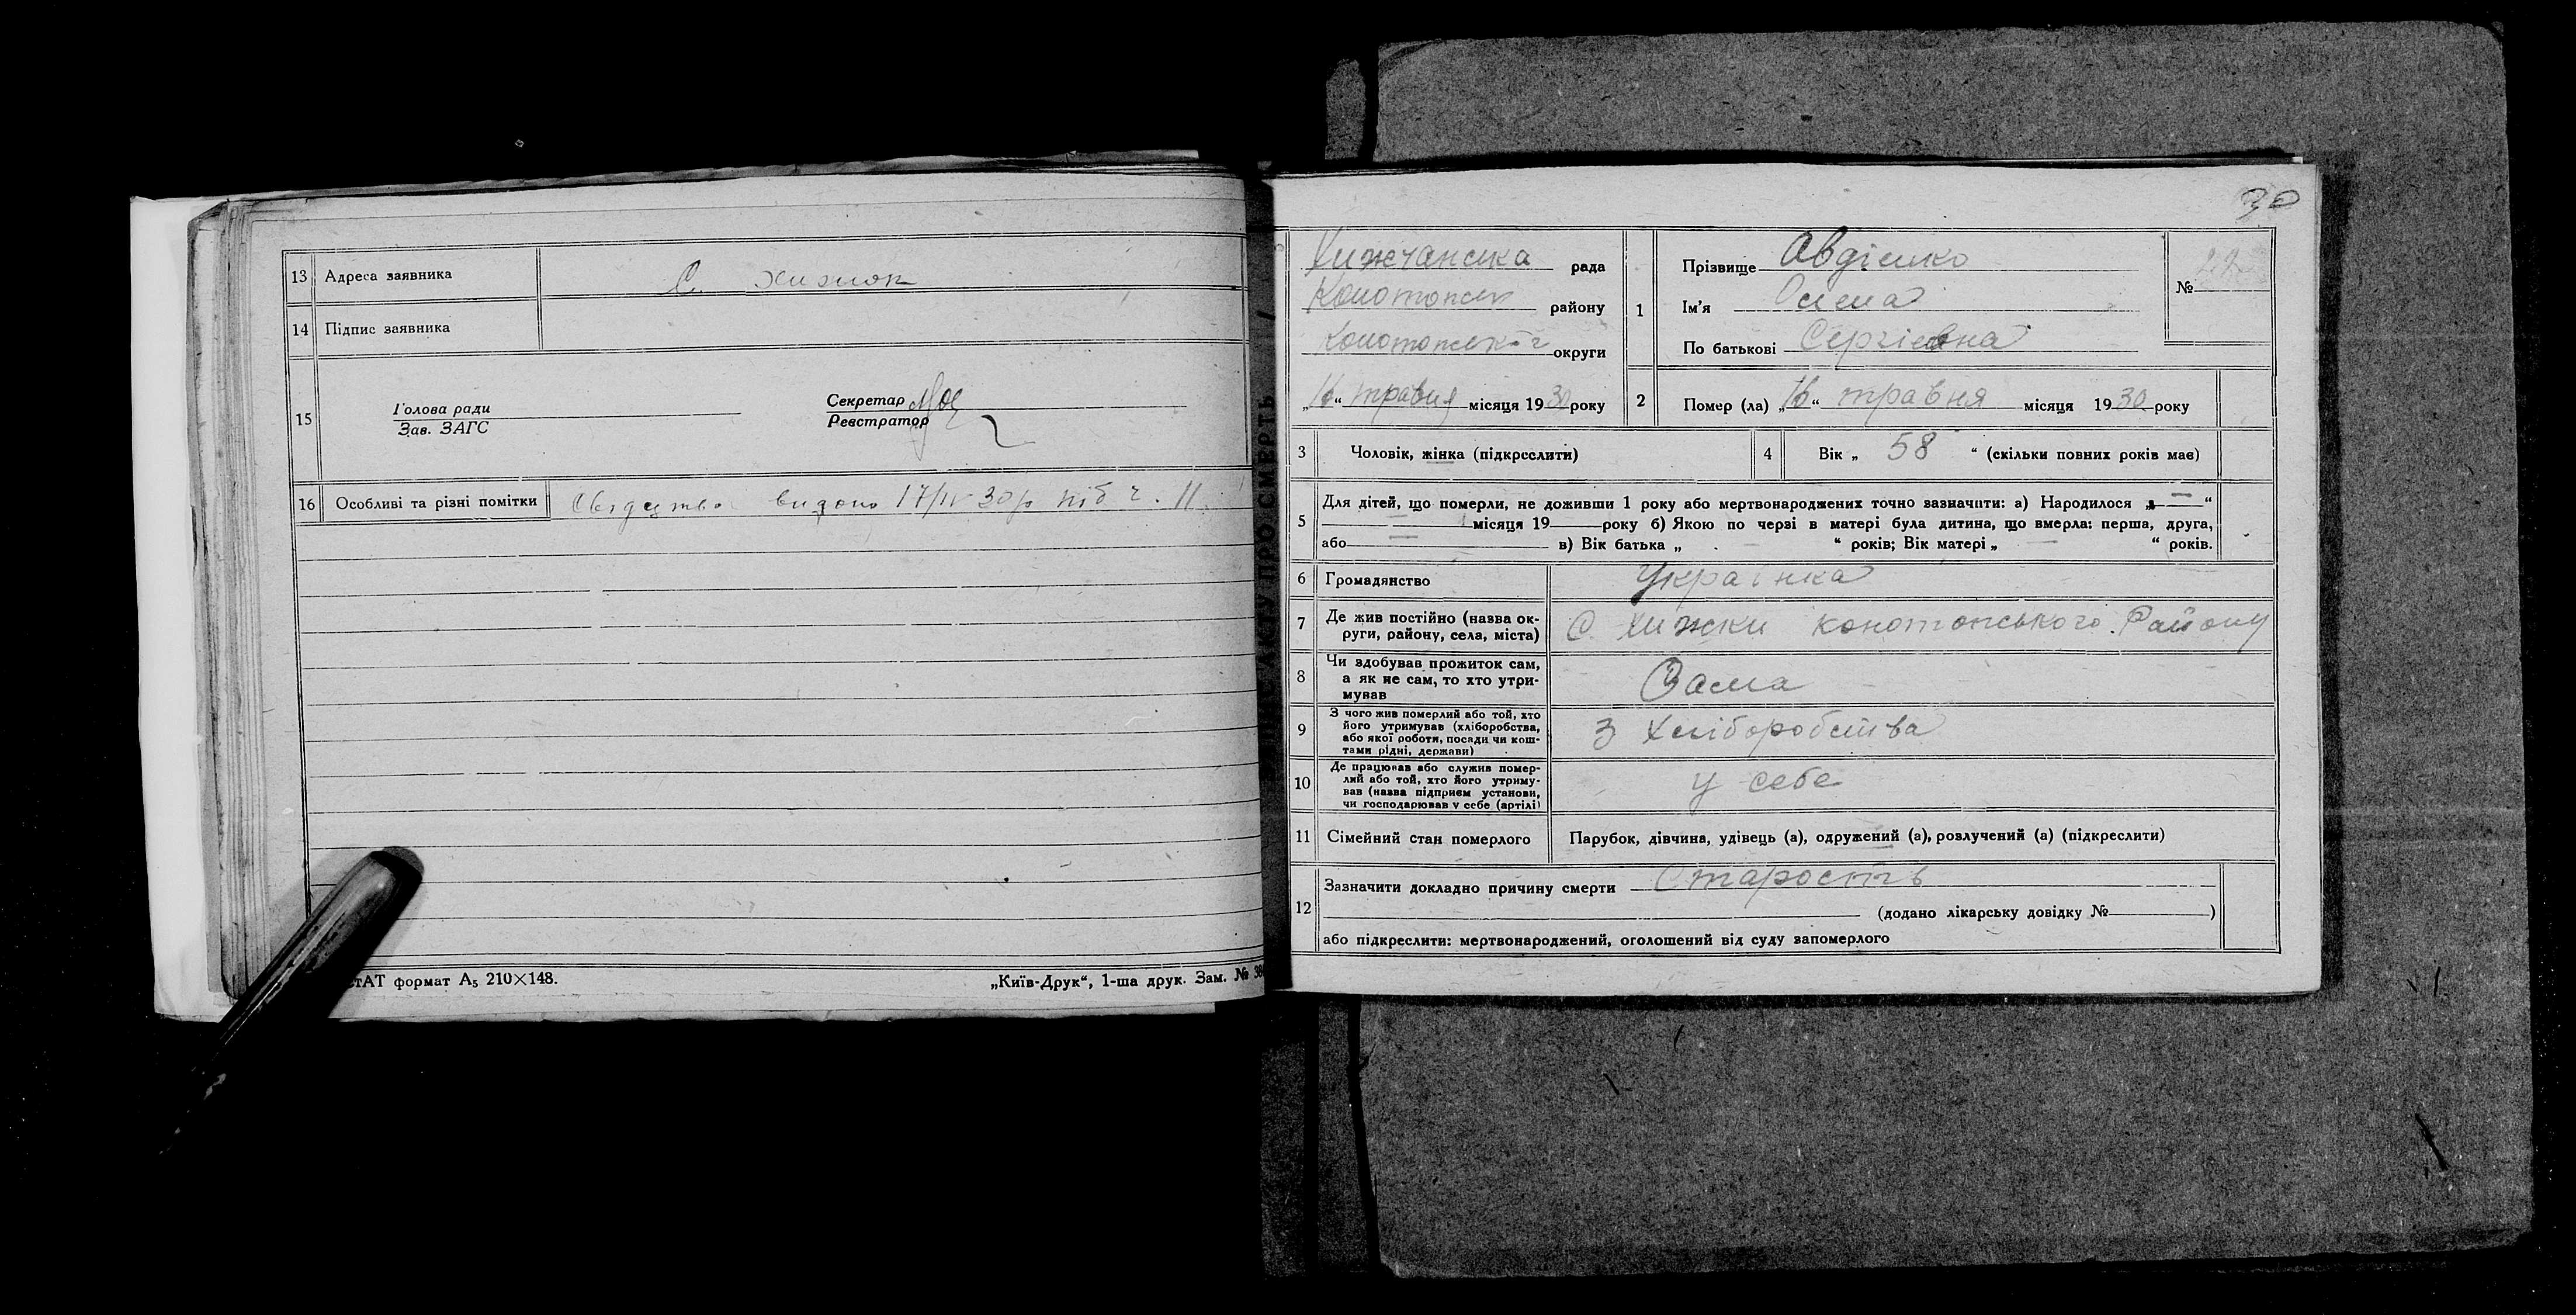 13 Адреса заявника С. Хижок
14 Підпис заявника
15 Голова ради
Зав. ЗАГС
Секретар
Реєстратор
16 Особливі та різні помітки Свідоцтво видано 17/IV 30 р під ч. 11.
стАТ формат А₅ 210×148.
„Київ-Друк“, 1-ша друк. Зам. №
30
Хижчанська рада
Конотопськ району
Конотопської округи
„16“ травня місяця 1930 року
1 Прізвище Авдієнко
Ім'я Олена
По батькові Сергієвна
№ 22
2 Помер (ла) „16“ травня місяця 1930 року
3 Чоловік, жінка (підкреслити)
4 Вік „ 58 “ (скільки повних років має)
5 Для дітей, що померли, не доживши 1 року або мертвонароджених точно зазначити: а) Народилося „—“
місяця 19 року б) Якою по черзі в матері була дитина, що вмерла: перша, друга,
або в) Вік батька „ “ років; Вік матері „ “ років.
6 Громадянство Українка
7 Де жив постійно (назва ок-
руги, району, села, міста) С. Хижки Конотопського. Району
8 Чи здобував прожиток сам,
а як не сам, то хто утри-
мував Сама
9 З чого жив померлий або той, хто
його утримував (хліборобства,
або якої роботи, посади чи кош-
тами рідні, держави) З Хліборобства
10 Де працював або служив помер-
лий або той, хто його утриму-
вав (назва підприєм установи,
чи господарював у себе (артілі) у себе
11 Сімейний стан померлого Парубок, дівчина, удівець (а), одружений (а), розлучений (а) (підкреслити)
12 Зазначити докладно причину смерти Старость
(додано лікарську довідку № )
або підкреслити: мертвонароджений, оголошений від суду запомерлого